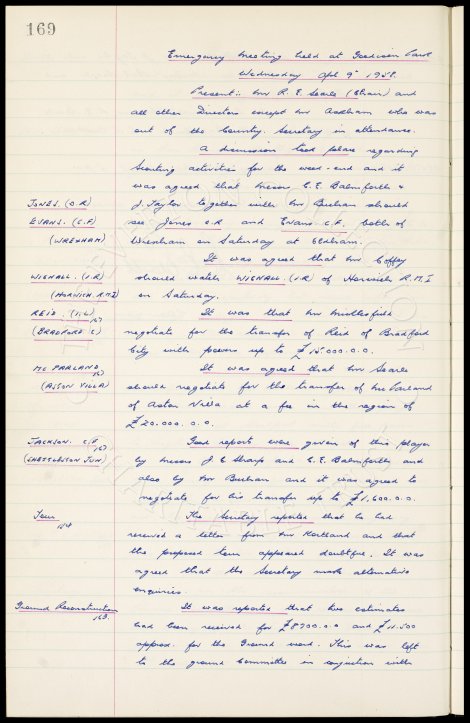 169
Emergency Meeting held at Goodison Park
Wednesday Apl 9th 1958.
Present :- Mr R. E. Searle (Chair) and
all other Directors except Mr Askham who was
out of the Country. Secretary in attendance.
A discussion took place regarding
Scouting activities for the week-end and it
was agreed that Messrs, C. E. Balmforth &
J. Taylor together with Mr Buchan should
JONES. (O.R) see Jones O.R and Evans C.F. both of
EVANS. (C.F) (WREXHAM) Wrexham on Saturday at Oldham.
It was agreed that Mr Coffey
WIGNALL. (I.R) should watch WIGNALL. (I.R) of Horwich R.M.I
(HORWICH R.M.I) on Saturday.
REID. (I.L) 167 It was that Mr Micklesfield
(BRADFORD C) negotiate for the transfer of Reid of Bradford
City with powers up to £15.000.0.0.
MC PARLAND It was agreed that Mr Searle
(ASTON VILLA) should negotiate for the transfer of McParland
of Aston Villa at a fee in the region of
£20.000.0.0.
JACKSON. C.F. 167 Good report were given of this player
by Messrs J. C. Sharp and C. E. Balmforth and
also by Mr Buchan and it was agreed to
negotiate for his transfer up to £1,600.0.0
Tour 164 The Secretary reported that he had
received a letter from Mr and that
the proposed tour appeared doubtful. It was
agreed that the Secretary make alternative
enquiries.
Ground Reconstruction 163. It was reported that two estimates
had been received for £8700.0.0 and £11.500
approx. for the Ground work. This was left
to the ground Committee in conjuction with